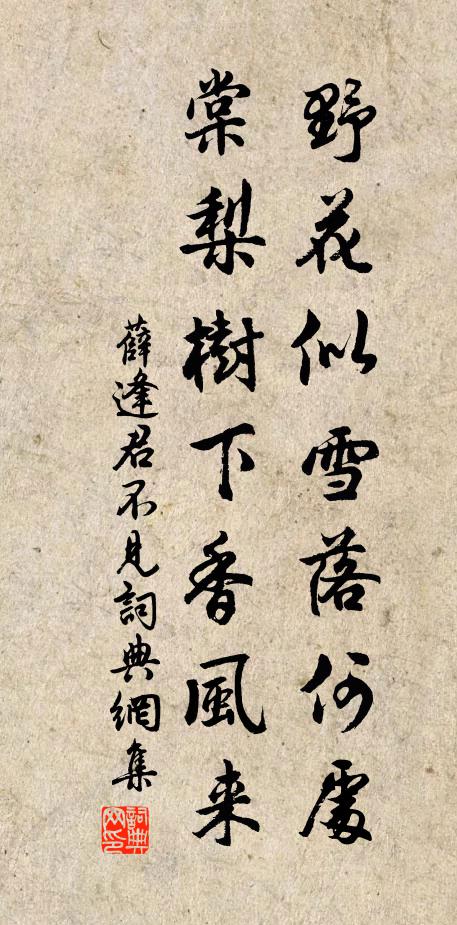 野花似雪落何處
棠梨樹下香風来
薛逢君不見詞典網集
詞典
网印